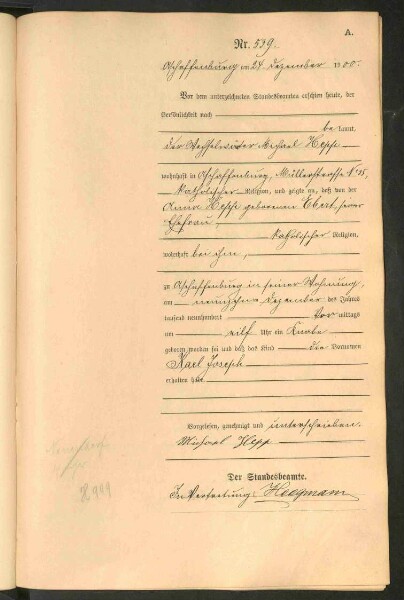 A.
Nr. 539.
Aschaffenburg am 24. Dezember 1900.
Vor dem unterzeichneten Standesbeamten erschien heute, der
Persönlichkeit nach
be kannt,
der Michael Hepp
wohnhaft in Aschaffenburg, Müllerstrasse No
katholischer Religion, und zeigte an, daß von der
Anna Hepp geborenen Ebert, seiner
Ehefrau
katholischer Religion,
wohnhaft bei ihm,
zu Aschaffenburg in seiner Wohnung,
am neunzehnten Dezember des Jahres
tausend neunhundert Vor mittags
um eilf Uhr ein Knabe
geboren worden sei und daß das Kind die Vornamen
Karl Joseph
erhalten habe
Vorgelesen, genehmigt und unterschrieben.
Michael Hepp
Der Standesbeamte.
In Vertretung: Hoegmann